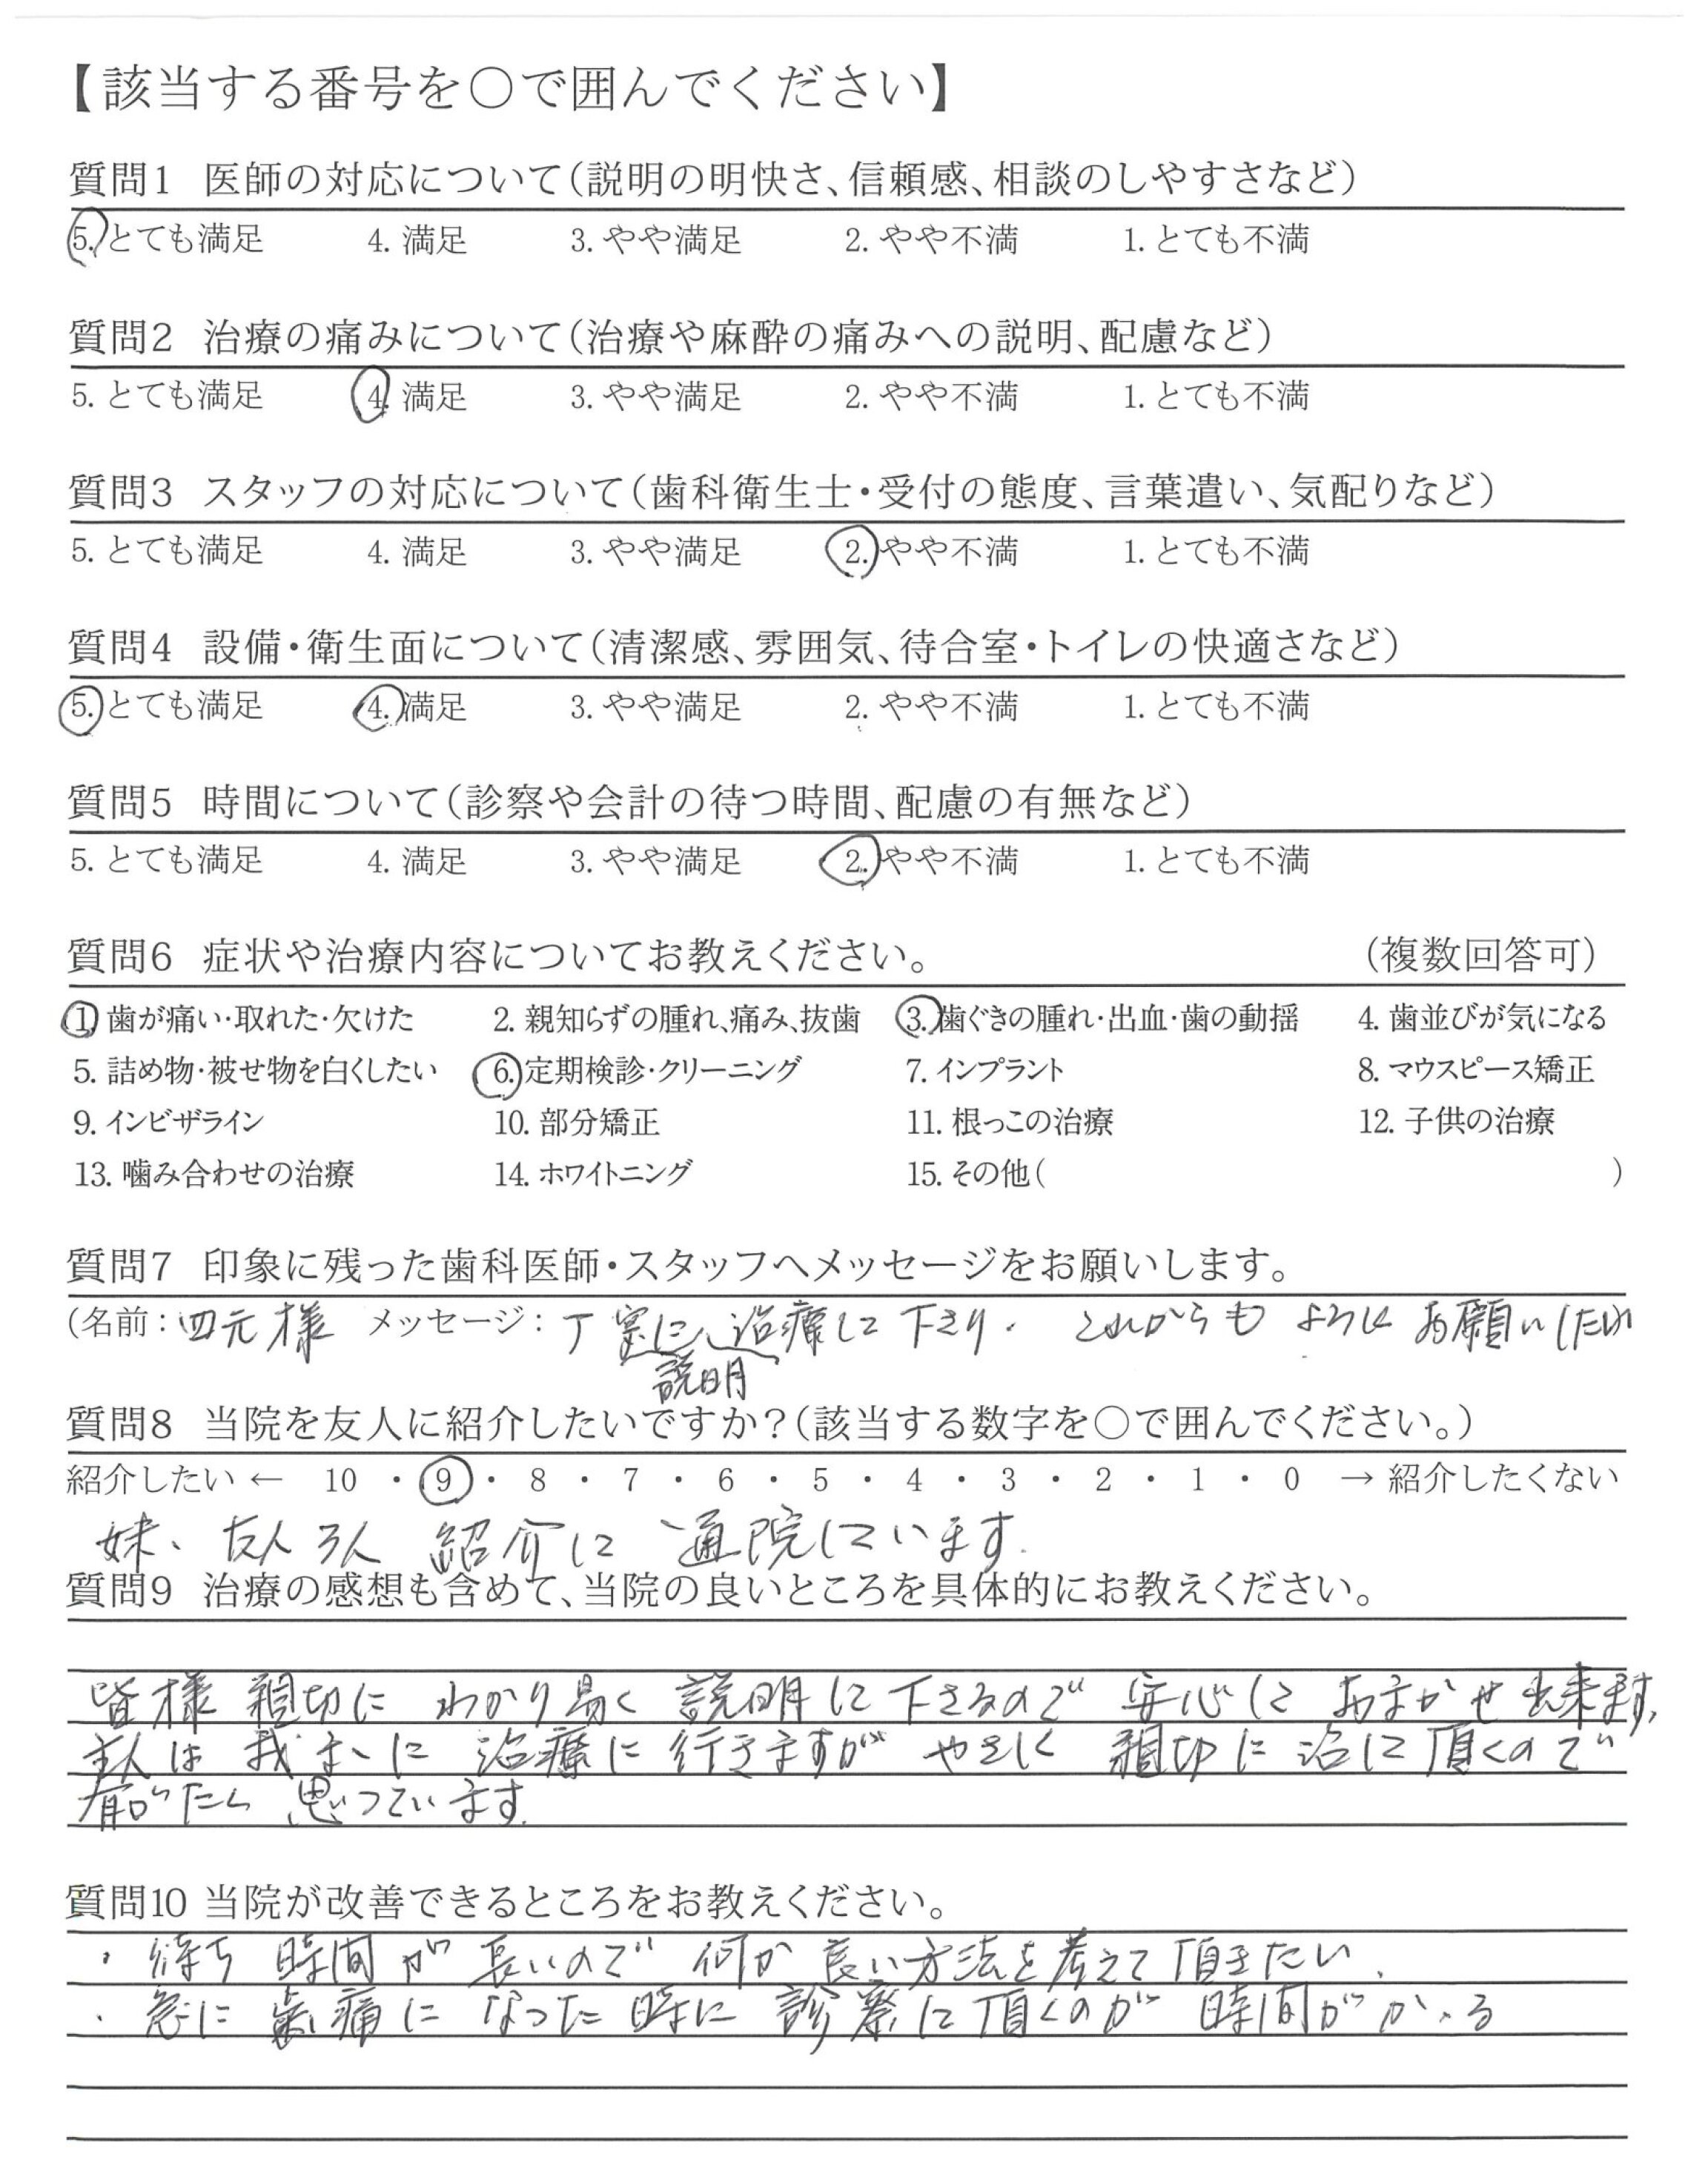 【該当する番号を〇で囲んでください】
質問1 医師の対応について(説明の明快さ、信頼感、相談のしやすさなど)
5. とても満足 4. 満足 3. やや満足 2. やや不満 1. とても不満
質問2 治療の痛みについて(治療や麻酔の痛みへの説明、配慮など)
5. とても満足 4. 満足 3. やや満足 2. やや不満 1. とても不満
質問3 スタッフの対応について(歯科衛生士・受付の態度、言葉遣い、気配りなど)
5. とても満足 4. 満足 3. やや満足 2. やや不満 1. とても不満
質問4 設備・衛生面について(清潔感、雰囲気、待合室・トイレの快適さなど)
5. とても満足 4. 満足 3. やや満足 2. やや不満 1. とても不満
質問5 時間について(診察や会計の待つ時間、配慮の有無など)
5. とても満足 4. 満足 3. やや満足 2. やや不満 1. とても不満
質問6 症状や治療内容についてお教えください。 (複数回答可)
1. 歯が痛い・取れた・欠けた 2. 親知らずの腫れ、痛み、抜歯 3. 歯ぐきの腫れ・出血・歯の動揺 4. 歯並びが気になる
5. 詰め物・被せ物を白くしたい 6. 定期検診・クリーニング 7. インプラント 8. マウスピース矯正
9. インビザライン 10. 部分矯正 11. 根っこの治療 12. 子供の治療
13. 噛み合わせの治療 14. ホワイトニング 15. その他( )
質問7 印象に残った歯科医師・スタッフへメッセージをお願いします。
(名前:四元様 メッセージ:丁寧に治療して下さり、これからもよろしくお願いしたい
説明
質問8 当院を友人に紹介したいですか?(該当する数字を〇で囲んでください。)
紹介したい ← 10 ・ 9 ・ 8 ・ 7 ・ 6 ・ 5 ・ 4 ・ 3 ・ 2 ・ 1 ・ 0 → 紹介したくない
妹、友人3人 紹介して 通院しています。
質問9 治療の感想も含めて、当院の良いところを具体的にお教えください。
皆様 親切に わかり易く 説明して下さるので 安心して おまかせ出来ます。
主人は 我まゝに 治療に行きますが やさしく 親切に 治して頂くので
思っています。
質問10 当院が改善できるところをお教えください。
・待ち 時間が 長いので 何か 良い方法を考えて頂きたい。
・急に 歯痛に なった時に 診察して頂くのが 時間がかゝる